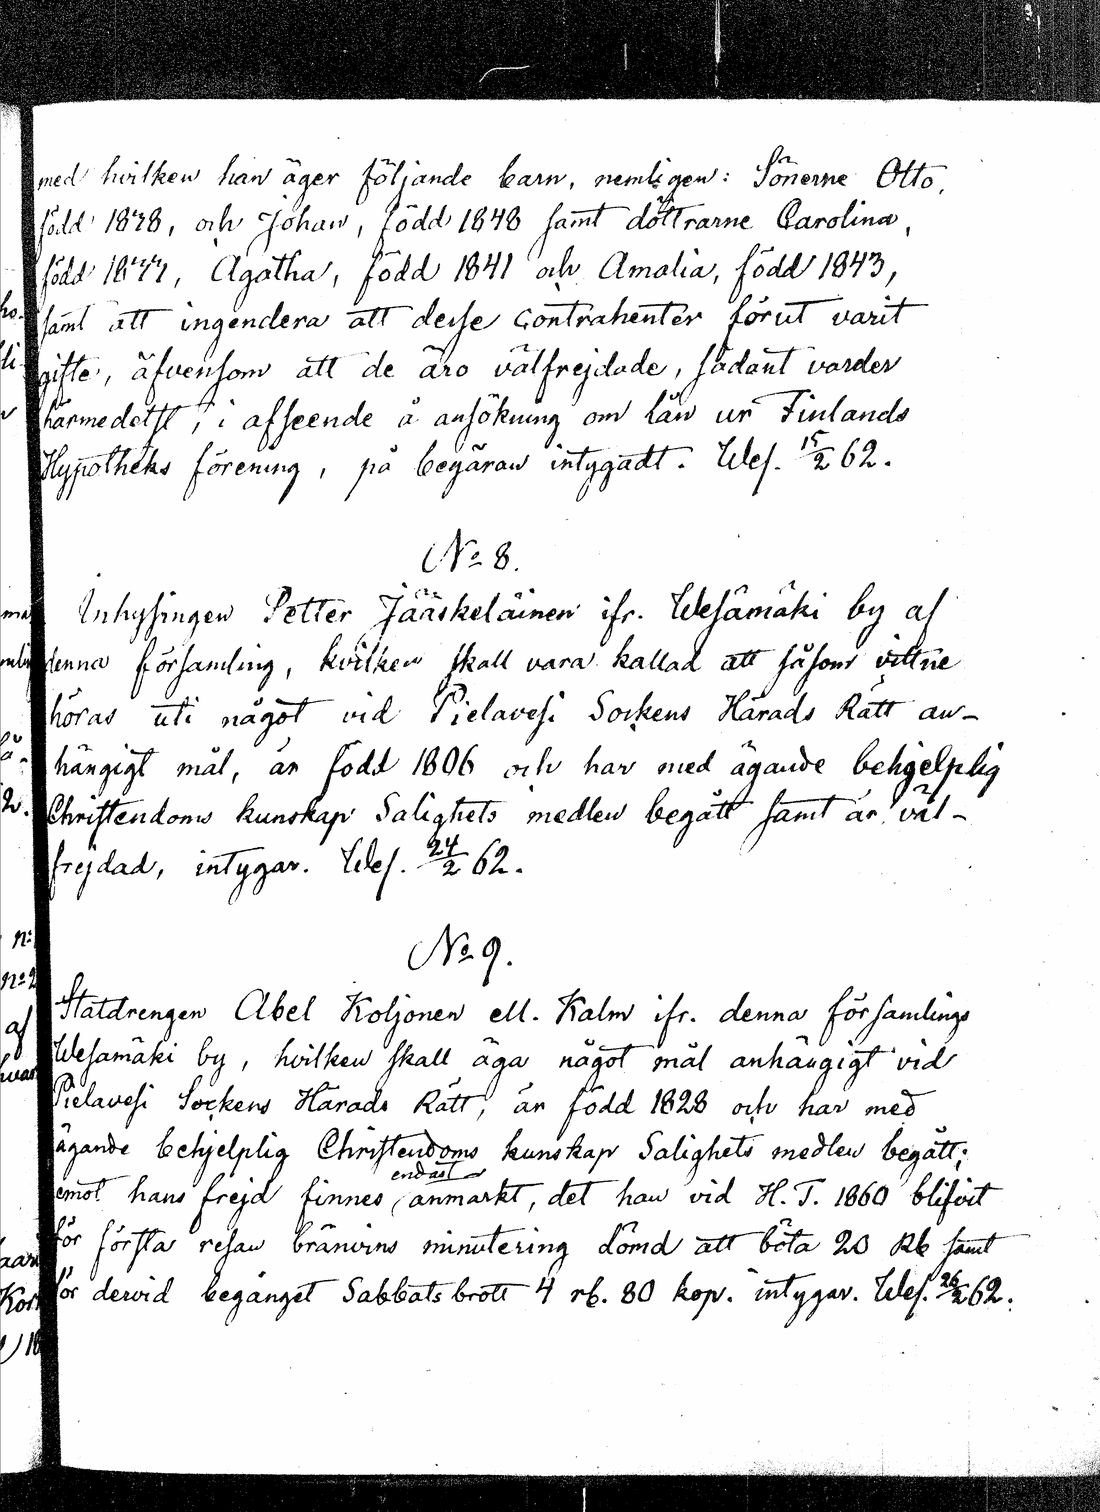 med hvilken han äger följande barn, nemligen: Sönerne Otto,
född 1838, och Johan, född 1848 samt döttrarne Carolina,
född, Agatha, född 1841 och Amalia, född 1843,
samt att ingendera att desse contrahenter förut varit
gifte, äfvensom att de äro välfrejdade, sådant varder
härmedelst, i afseende å ansökning om lån ur Finlands
Hypotheks förening, på begäran intygadt. Wes. 15/2 62.
No 8.
Inhysingen Petter Jääskeläinen ifr. Wesamäki by af
denna församling, hvilken skall vara kallad att såsom vittne
höras uti något vid Pielavesi Sockens Härads Rätt an-
hängigt mål, är född 1806 och har med ägande behjelplig
Christendoms kunskap Salighets medlen begått samt är väl-
frejdad, intygar. Wes. 24/2 62.
No 9.
Statdrengen Abel Koljonen ell. Kalm ifr. denna församlings
Wesamäki by, hvilken skall äga något mål anhängigt vid
Pielavesi Sockens Härads Rätt, är född 1828 och har med
ägande behjelplig Christendoms kunskap Salighets medlen begått;
emot hans frejd finnes endast anmärkt, det han vid H. T. 1860 blifvit
för första resan bränvins minutering dömd att böta 20 Rb samt
för dervid begånget Sabbatsbrott 4 rb. 80 kop. intygar. Wes. 26/2 62.